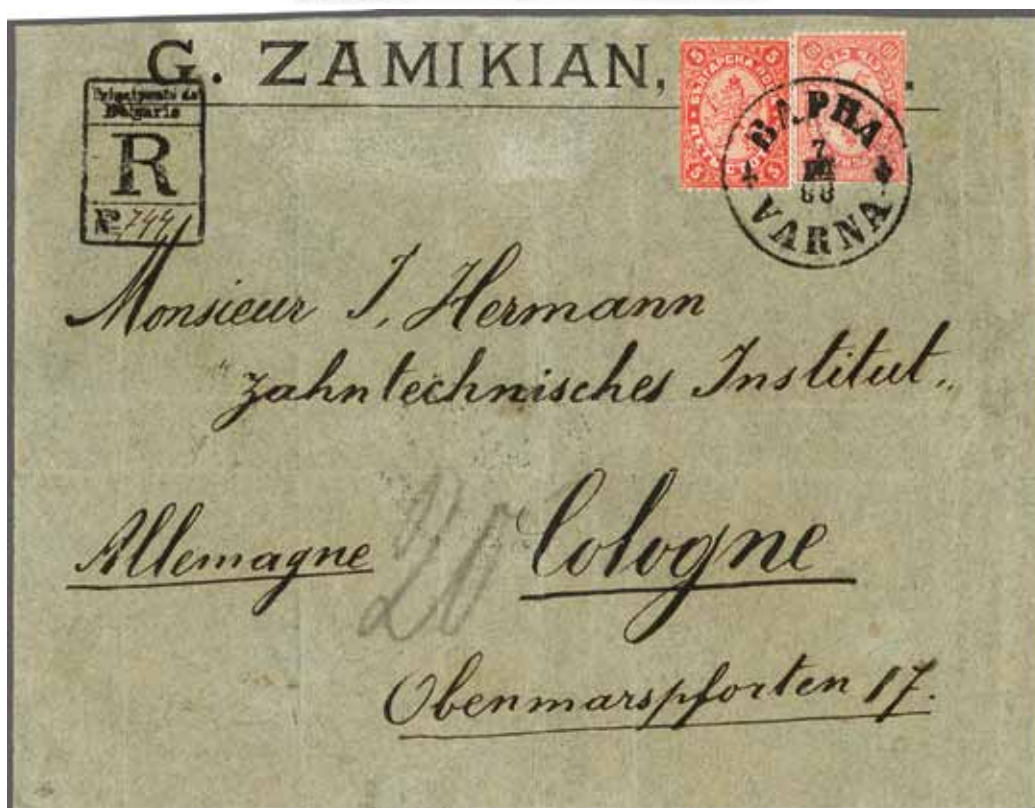 G. ZAMIKIAN,
Principauté de
Bulgarie
R
№ 744
5 5
БЪЛГАРСКА ПОЩА
5 5
10 10
ВАРНА
7
VARNA
Monsieur J. Hermann
Zahntechnisches Institut
Allemagne
20
Cologne
Obenmarspforten 17.